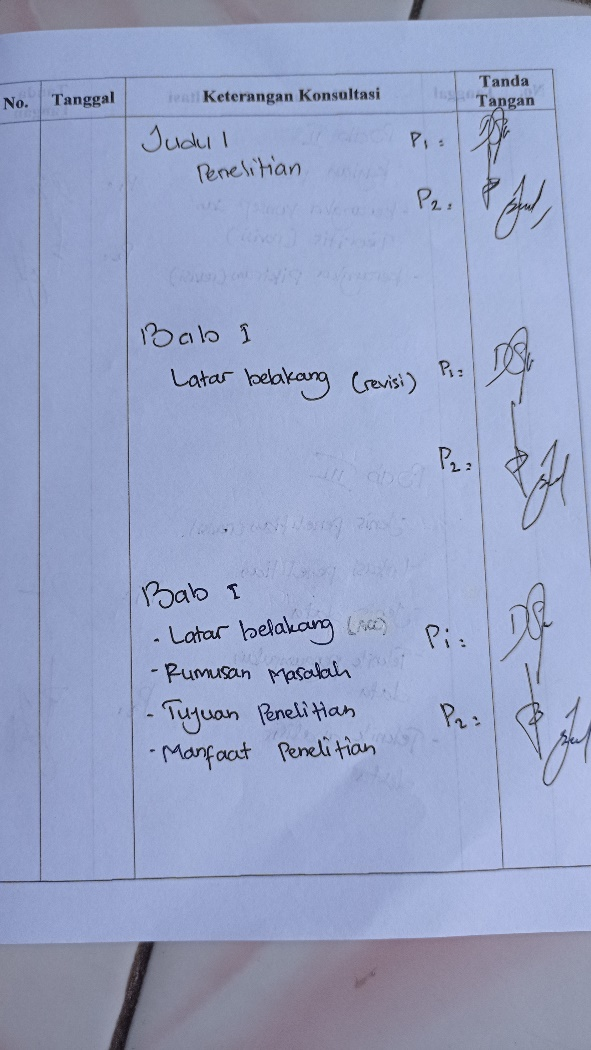 No. Tanggal Keterangan Konsultasi Tanda Tangan
Judul
Penelitian
P1 :
P2 :
Bab I
Latar belakang (revisi)
P1 :
P2 :
Bab I
- Latar belakang (acc)
Pi :
- Rumusan Masalah
- Tujuan Penelitian
P2 :
- Manfaat Penelitian